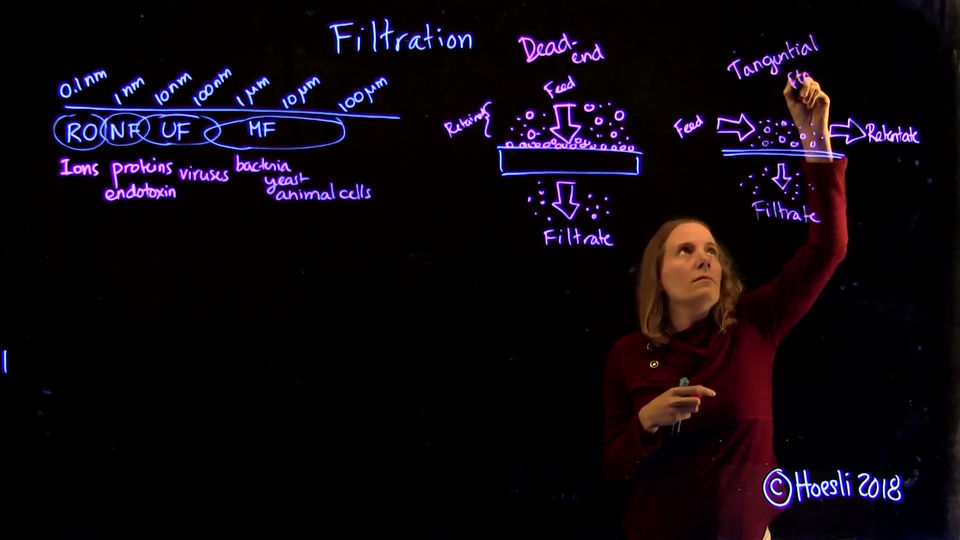 Filtration
0.1nm 1nm 10nm 100nm 1µm 10µm 100µm
RO NF UF MF
Ions proteins viruses bacteria
endotoxin yeast
animal cells
Dead-
end
Feed
Retained
Filtrate
Tangential
Feed
Retentate
Filtrate
© Hoesli 2018